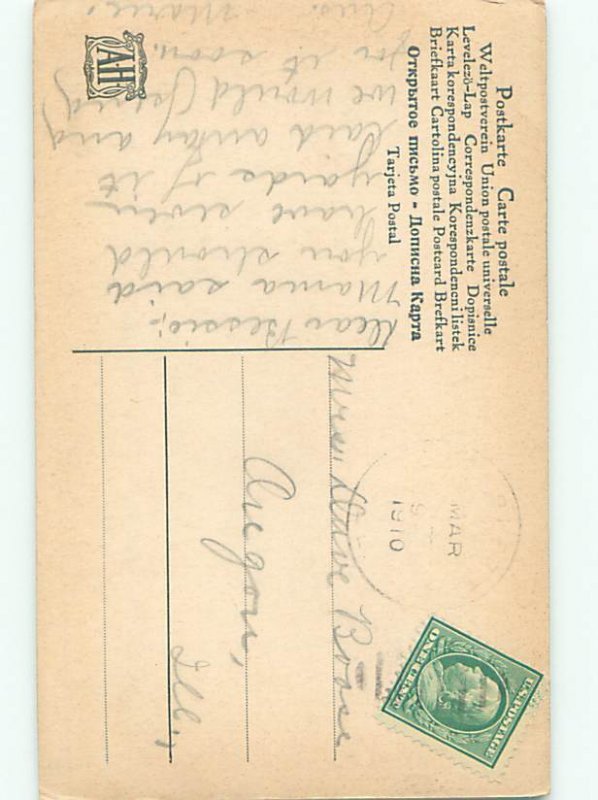 Postkarte Carte postale
Weltpostverein Union postale universelle
Levelezö-Lap Correspondenzkarte Dopisnice
Karta korespondencyjna Korespondencni listek
Briefkaart Cartolina postale Postcard Brefkort
Открытое письмо - Дописна Карта
Tarjeta Postal
AH
Dear Bessie;-
Mama said
you should
have seven
yards of it
laid away and
we would
for it soon.
Aus. Marie.
MAR
9
1910
Mrs. Dave Boose
Oregon,
Ill.,
U.S. POSTAGE
ONE CENT